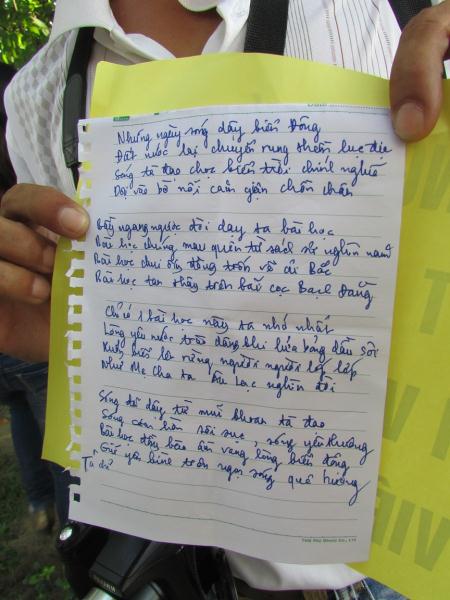 Những ngày sóng dậy biển Đông
Đất nước lại chuyển rung thềm lục địa
Sóng tà đạo chọc biển trời chính nghĩa
Dội vào bờ nỗi căm giận chồn chân
Bấy ngang ngược đòi dạy ta bài học
Bài học chúng mau quên từ sách sử nghìn năm
Bài học chui ống đồng trốn về ải Bắc
Bài học tan thây trên bãi cọc Bạch Đằng
Chỉ có 1 bài học này ta nhớ nhất
Lòng yêu nước trào dâng khi lửa bỏng dầu sôi
Xuống biển lên rừng, người người lớp lớp
Như Mẹ Cha ta Âu Lạc nghìn đời
Sóng dữ dậy từ mũi khoan tà đạo
Sóng căm hờn sôi sục, sóng yêu thương
Bài học đồng bào âm vang lòng biển động
Giữ yên bình trên ngọn sóng quê hương
Tà đạo
Thái Phú Quang Co., Ltd
VIỆ